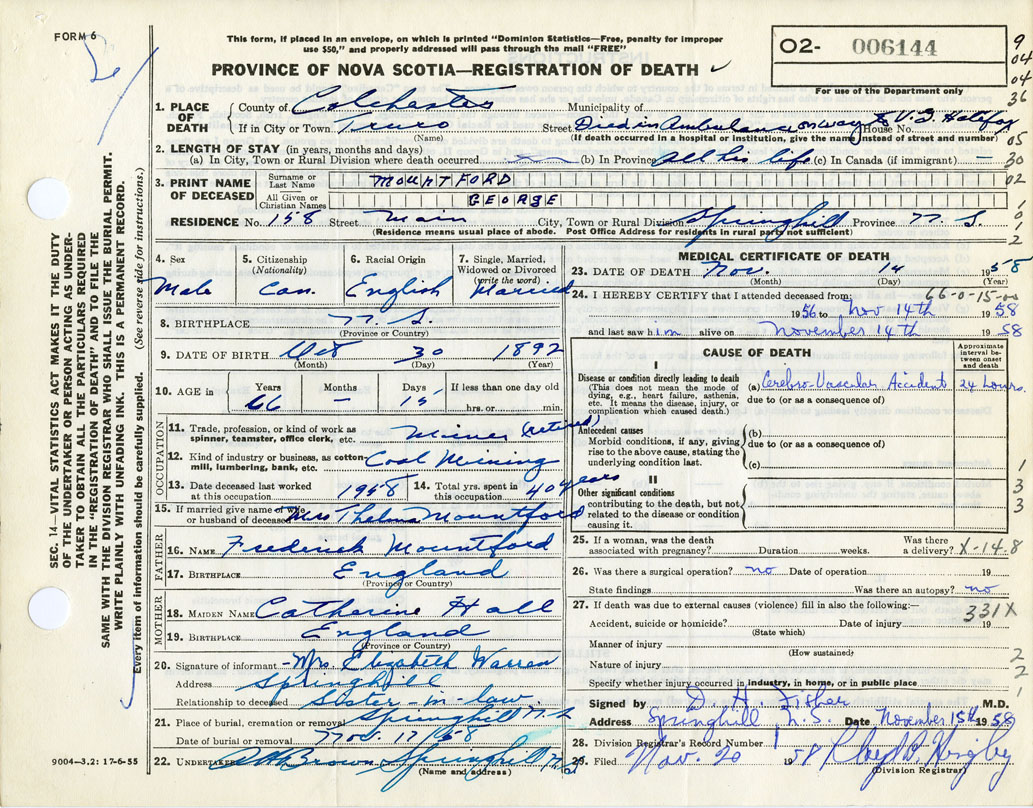 FORM 6
This form, if placed in an envelope, on which is printed "Dominion Statistics—Free, penalty for improper
use $50," and properly addressed will pass through the mail "FREE"
PROVINCE OF NOVA SCOTIA—REGISTRATION OF DEATH
O2- 006144
For use of the Department only
9
04
04
36
05
30
02
SEC. 14—VITAL STATISTICS ACT MAKES IT THE DUTY
OF THE UNDERTAKER OR PERSON ACTING AS UNDER-
TAKER TO OBTAIN ALL THE PARTICULARS REQUIRED
IN THE "REGISTRATION OF DEATH" AND TO FILE THE
SAME WITH THE DIVISION REGISTRAR WHO SHALL ISSUE THE BURIAL PERMIT.
WRITE PLAINLY WITH UNFADING INK. THIS IS A PERMANENT RECORD.
Every item of information should be carefully supplied. (See reverse side for instructions.)
1. PLACE OF DEATH County of Colchester Municipality of
If in City or Town Truro Street Died in Ambulance on way to V.G. Halifax House No.
(Name) (If death occurred in a hospital or institution, give the name instead of street and number)
2. LENGTH OF STAY (in years, months and days)
(a) In City, Town or Rural Division where death occurred (b) In Province all his life (c) In Canada (if immigrant) —
3. PRINT NAME OF DECEASED Surname or Last Name MOUNTFORD
All Given or Christian Names GEORGE
RESIDENCE No. 158 Street Main City, Town or Rural Division Springhill Province N.S.
(Residence means usual place of abode. Post Office Address for residents in rural party not sufficient)
4. Sex Male
5. Citizenship (Nationality) Can.
6. Racial Origin English
7. Single, Married, Widowed or Divorced (write the word) Married
8. BIRTHPLACE N. S.
(Province or Country)
9. DATE OF BIRTH Oct 30 1892
(Month) (Day) (Year)
10. AGE in Years 66 Months — Days 15 If less than one day old
hrs. or min.
OCCUPATION
11. Trade, profession, or kind of work as spinner, teamster, office clerk, etc. Miner (retired)
12. Kind of industry or business, as cotton mill, lumbering, bank, etc. Coal Mining
13. Date deceased last worked at this occupation 1958
14. Total yrs. spent in this occupation 40 years
15. If married give name of wife or husband of deceased Mrs Thelma Mountford
FATHER
16. NAME Frederick Mountford
17. BIRTHPLACE England
(Province or Country)
MOTHER
18. MAIDEN NAME Catherine Hall
19. BIRTHPLACE England
(Province or Country)
20. Signature of informant - Mrs. Elizabeth Warren
Address Springhill
Relationship to deceased sister-in-law
21. Place of burial, cremation or removal Springhill N.S
Date of burial or removal Nov. 17/58
22. UNDERTAKER Brown Springhill N.S
(Name and address)
9004—3.2: 17-6-55
MEDICAL CERTIFICATE OF DEATH
23. DATE OF DEATH Nov. 14 1958
(Month) (Day) (Year)
66-0-15-
24. I HEREBY CERTIFY that I attended deceased from:
1956 to Nov 14th 1958
and last saw him alive on November 14th 1958
CAUSE OF DEATH
Approximate interval between onset and death
I
Disease or condition directly leading to death
(This does not mean the mode of dying, e.g., heart failure, asthenia, etc. It means the disease, injury, or complication which caused death.)
(a) Cerebro-Vascular Accident 24 hours.
due to (or as a consequence of)
Antecedent causes
Morbid conditions, if any, giving rise to the above cause, stating the underlying condition last.
(b)
due to (or as a consequence of)
(c)
II
Other significant conditions
contributing to the death, but not related to the disease or condition causing it.
1
3
3
25. If a woman, was the death associated with pregnancy? Duration weeks. Was there a delivery? X-14.8
26. Was there a surgical operation? no Date of operation 19
State findings Was there an autopsy? no
27. If death was due to external causes (violence) fill in also the following:— 331X
Accident, suicide or homicide? Date of injury 19
(State which)
Manner of injury
(How sustained)
Nature of injury
Specify whether injury occurred in industry, in home, or in public place
2
2
1
Signed by D. H. Fisher M.D.
Address Springhill N.S. Date November 15th 1958
28. Division Registrar's Record Number
29. Filed Nov. 20 19
(Division Registrar)